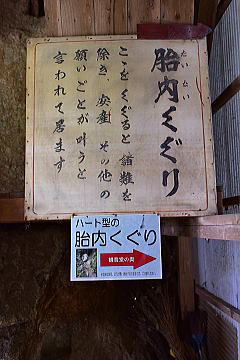 胎内くぐり
たいない
ここをくぐると諸難を
除き、安産、その他の
願いごとが叶うと
言われて居ます
ハート型の
胎内くぐり
観音堂の奥